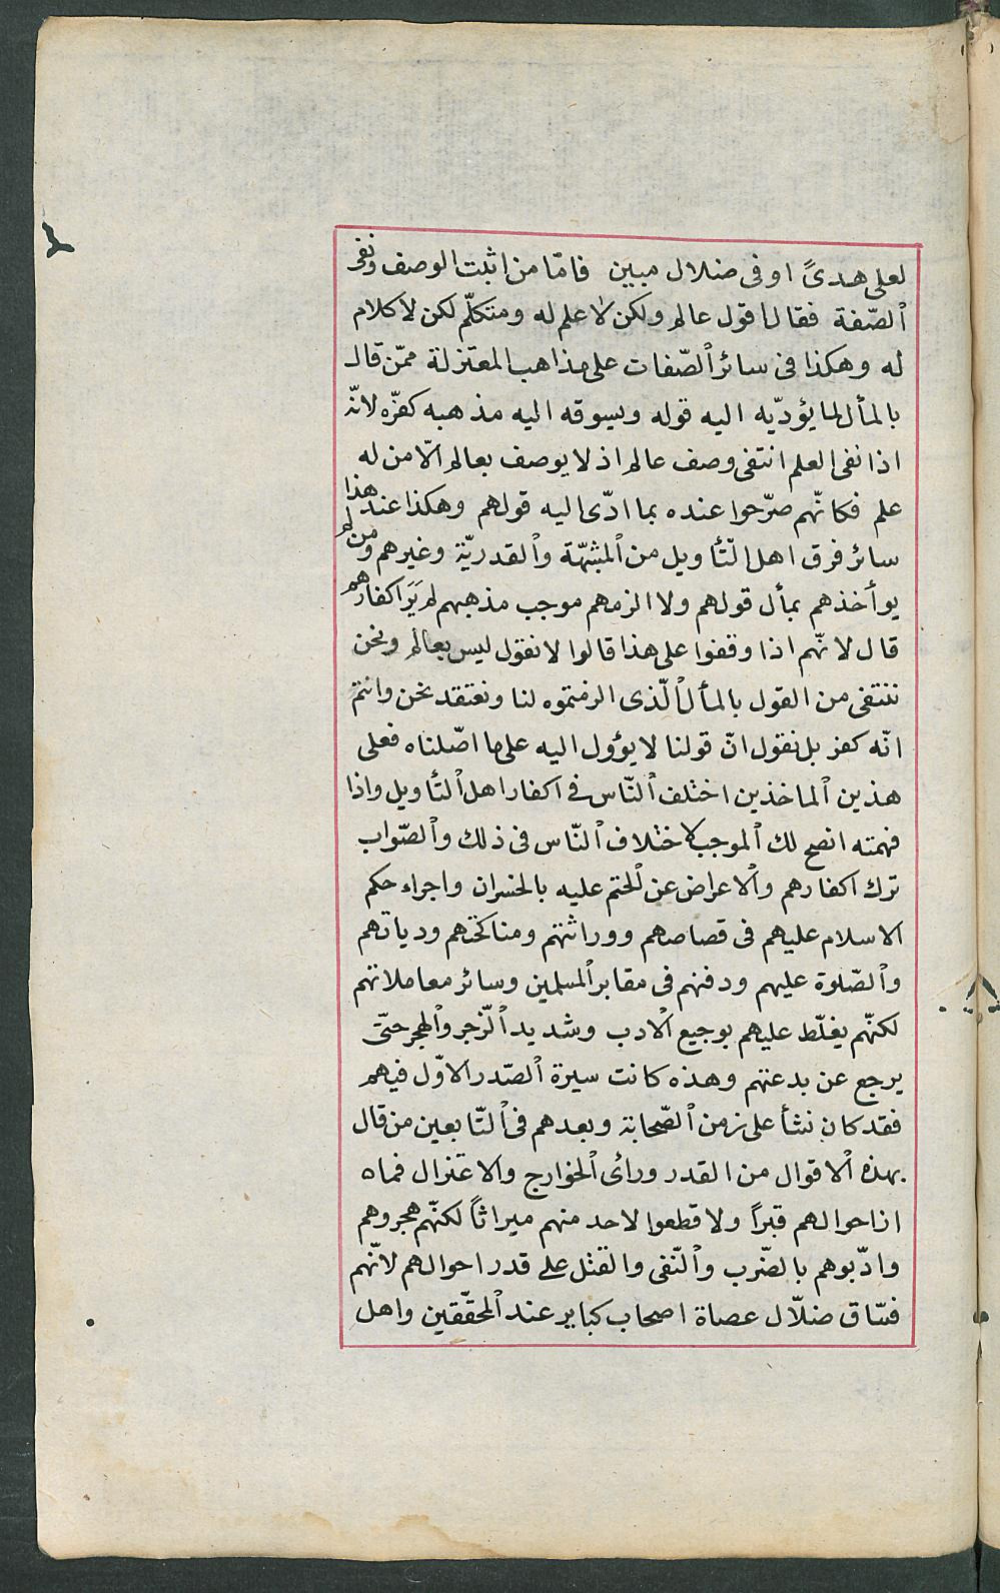 لعلى هدىً او فى ضلال مبين فامّا من اثبت الوصف ونفى
ٱلصّفة فقال اقول عالم ولكن لا علم له ومتكلّم لكن لا كلام
له وهكذا فى سائر ٱلصّفات على مذاهب المعتزلة ممّن قال
بالمأل لما يؤدّيه اليه قوله ويسوقه اليه مذهبه كفّره لانّه
اذا نفى العلم انتفى وصف عالم اذ لا يوصف بعالم الّا من له
علم فكانّهم صرّحوا عنده بما ادّى اليه قولهم وهكذا عند هذا
سائر فرق اهل التّأويل من ٱلمشبّهة وٱلقدريّة وغيرهم ومن لم
يوأخذهم بمأل قولهم ولا الزمهم موجب مذهبهم لم يَرَ اكفارهم
قال لانّهم اذا وقفوا على هذا قالوا لا نقول ليس بعالم ونحن
ننتفى من القول بالمأل ٱلّذى الزمتموه لنا ونعتقد نحن وانتم
انّه كفر بل نقول انّ قولنا لا يؤول اليه على ما اصّلناه فعلى
هذين ٱلماخذين اختلف ٱلنّاس فى اكفار اهل ٱلتأويل واذا
فهمته اتضح لك ٱلموجب لاختلاف ٱلنّاس فى ذلك وٱلصّواب
ترك اكفارهم وٱلاعراض عن ٱلحتم عليه بالخسران واجراء حكم
الاسلام عليهم فى قصاصهم ووراثتهم ومناكحتهم ودياتهم
وٱلصّلوة عليهم ودفنهم فى مقابر ٱلمسلمين وسائر معاملاتهم
لكنّهم يغلّظ عليهم بوجيع ٱلادب وشديد ٱلزّجر وٱلهجر حتّى
يرجع عن بدعتهم وهذه كانت سيرة ٱلصّدر الاوّل فيهم
فقد كان نشأ على زمن ٱلصّحابة وبعدهم فى ٱلتّابعين من قال
بهذه ٱلاقوال من القدر ورأى ٱلخوارج والاعتزال فماه
ازاحوا لهم قبراً ولا قطعوا لاحد منهم ميراثاً لكنّهم هجروهم
وادّبوهم بالضّرب وٱلنّفى والقتل على قدر احوالهم لانّهم
فسّاق ضلّال عصاة اصحاب كباير عند ٱلمحقّقين واهل